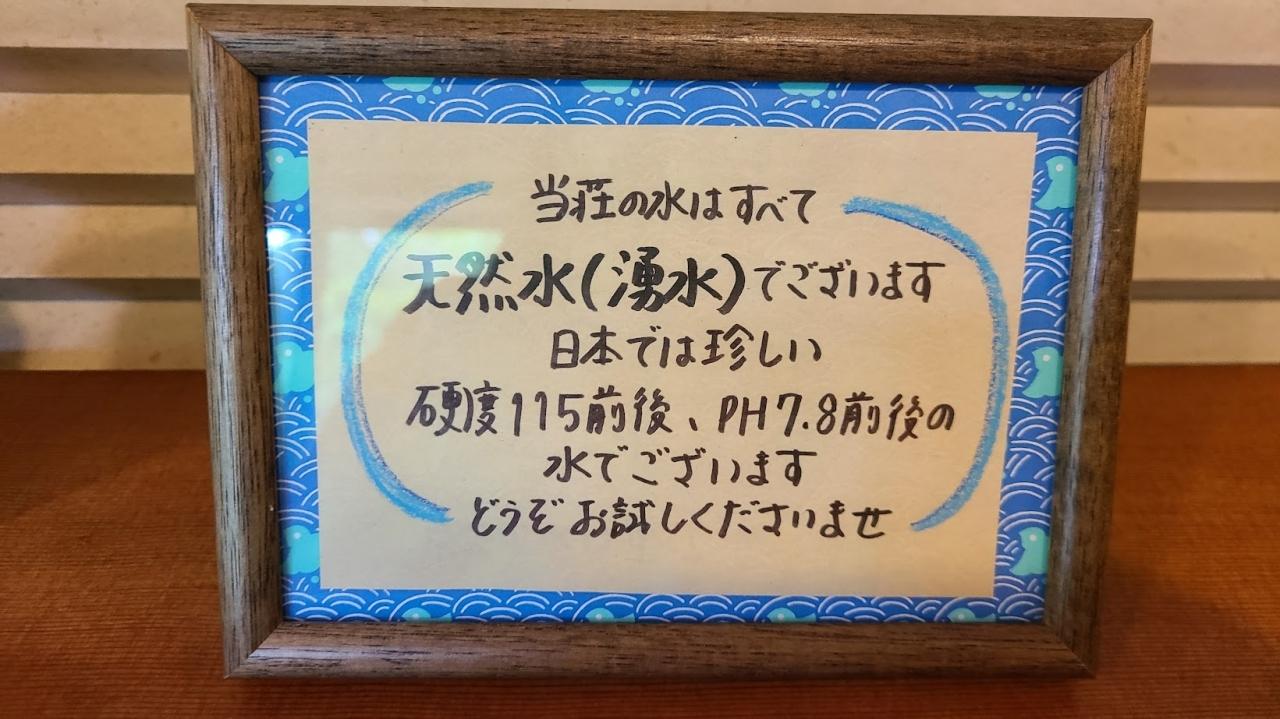 当荘の水はすべて
天然水(湧水)でございます
日本では珍しい
硬度115前後、PH7.8前後の
水でございます
どうぞお試しくださいませ